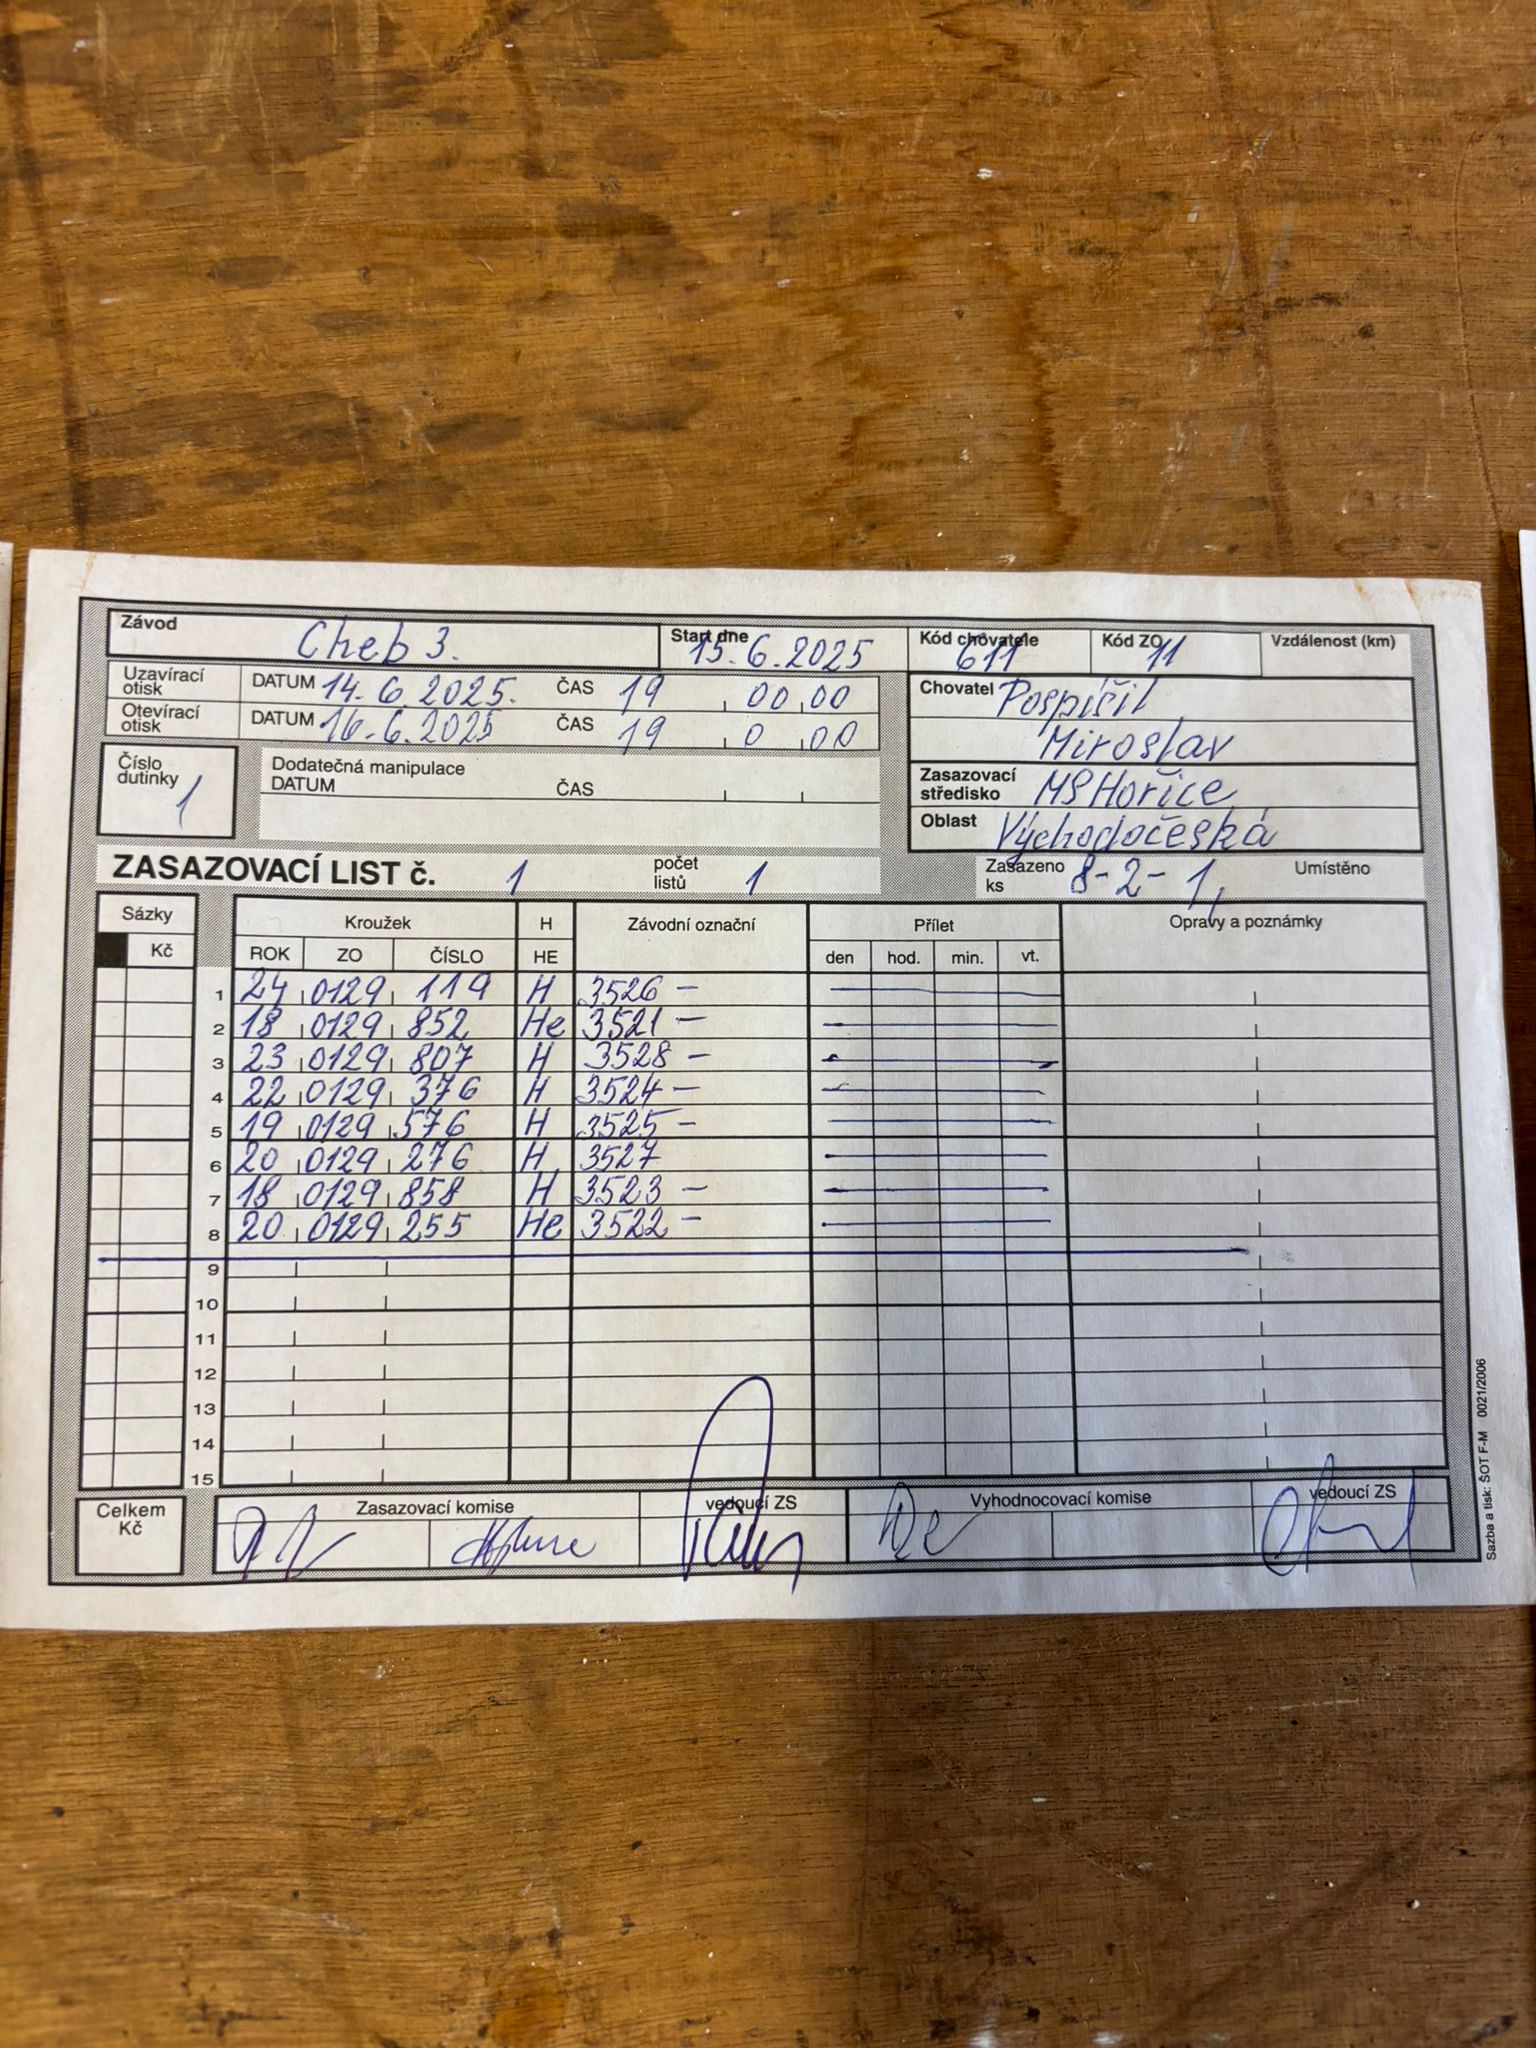 Závod Cheb 3. Start dne 15.6.2025 Kód chovatele 611 Kód ZO 11 Vzdálenost (km)
Uzavírací otisk DATUM 14.6.2025. ČAS 19 00 00
Otevírací otisk DATUM 16.6.2025 ČAS 19 0 00
Chovatel Pospíšil
Miroslav
Číslo dutinky 1
Dodatečná manipulace
DATUM ČAS
Zasazovací středisko MS Hořice
Oblast Východočeská
ZASAZOVACÍ LIST č. 1 počet listů 1 Zasazeno ks 8-2-1, Umístěno
Sázky Kroužek H Závodní označní Přílet Opravy a poznámky
Kč ROK ZO ČÍSLO HE den hod. min. vt.
1 24 0129 119 H 3526 –
2 18 0129 852 He 3521 –
3 23 0129 807 H 3528 –
4 22 0129 376 H 3524 –
5 19 0129 576 H 3525 –
6 20 0129 276 H 3527
7 18 0129 858 H 3523 –
8 20 0129 255 He 3522 –
9
10
11
12
13
14
15
Celkem Kč Zasazovací komise vedoucí ZS Vyhodnocovací komise vedoucí ZS
Sazba a tisk: ŠOT F-M 0021/2006